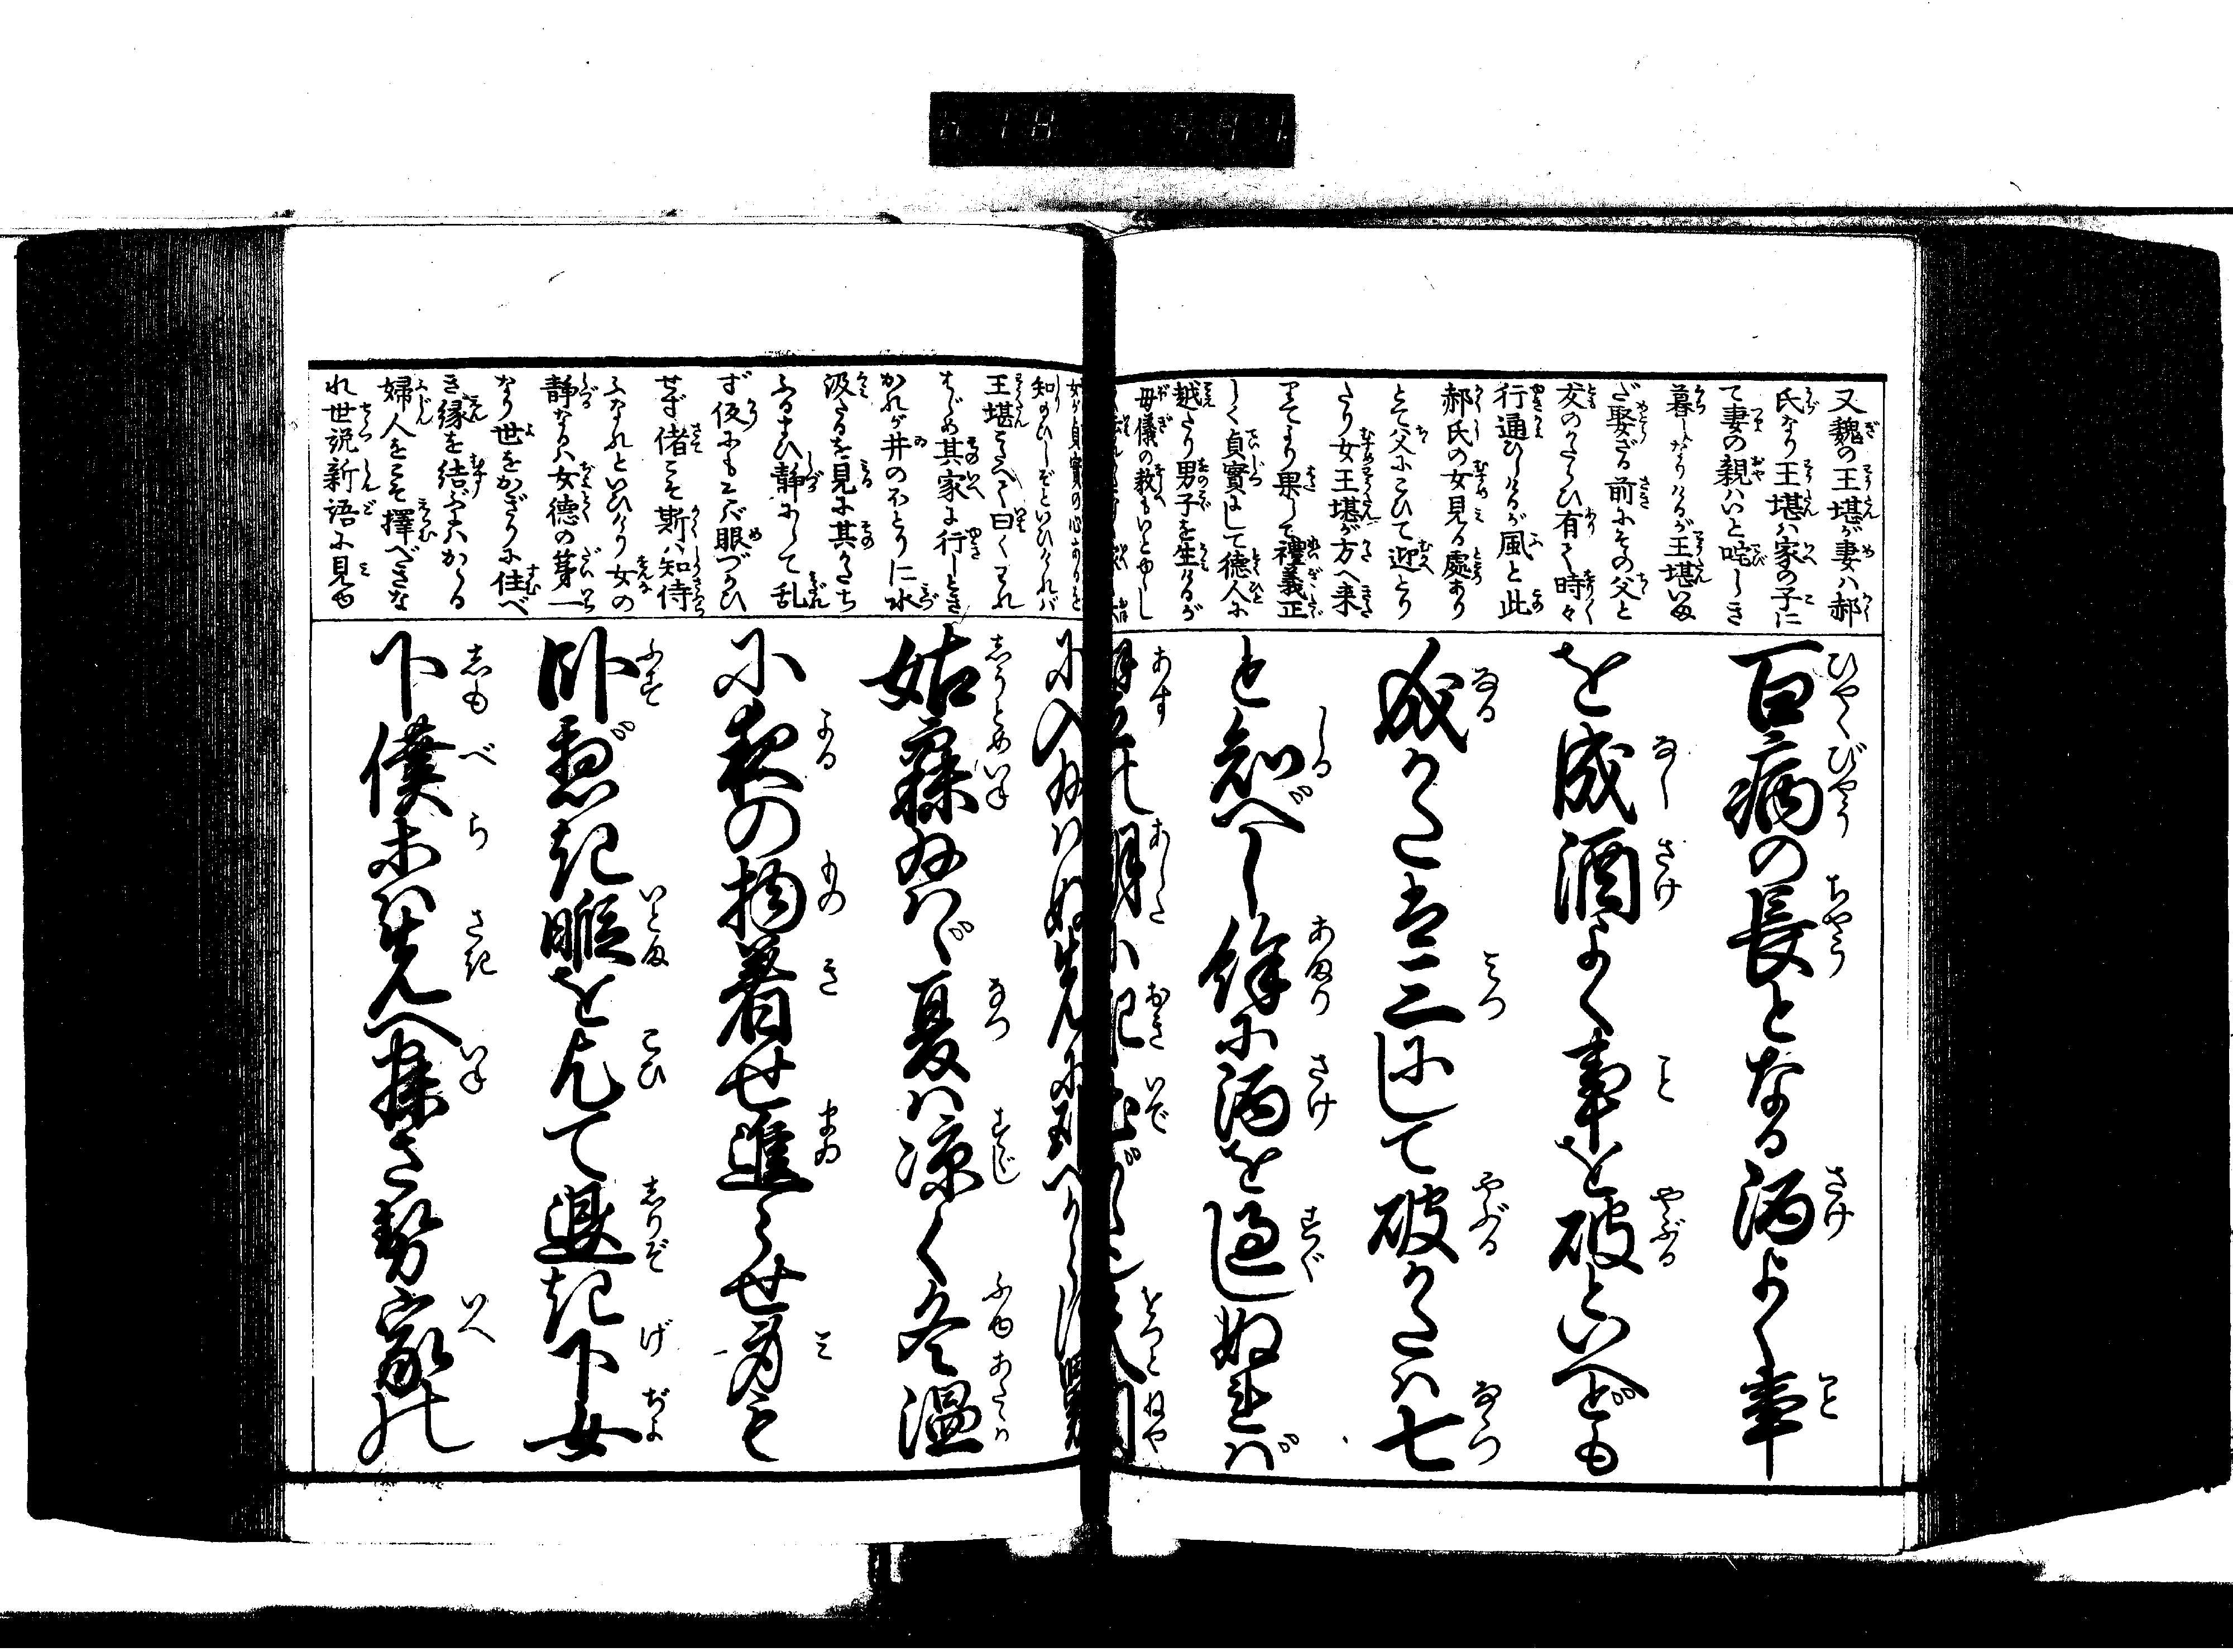 又魏の王堪が妻ハ郝
氏なり王堪ハ家の子に
て妻の親ハいと
暮しなりけるが王堪いま
だ娶ざる前にその父と
友のかたらひ有て時々
行通ひけるが風と此
郝氏の女見る處あり
とて父にこひて迎とり
たり女王堪が方へ来
りてより果して禮義正
しく貞實にして徳人に
越たり男子を生けるが
母儀の教もいとゆゝし
女が貞實の心あるを
知のひしぞといひけれバ
王堪こたへて曰くわれ
はじめ其家に行しとき
かれが井のほとりに水
汲たるを見に其かたち
ふるまひ静にして乱
ず仮にも眼づかひ
せず偖こそ斯ハ知侍
ふなれといひけり女の
静なるハ女徳の第一
なり世をかぎりに住べ
き縁を結ぶにハかゝる
婦人をこそ擇べきな
れ世説新語に見ゆ
百病の長となる酒よく事
を成酒よく事を破といへども
成かたは三にして破かたハ七
と知べし餘に酒を過しぬれば
姑寐給ハゞ夏ハ涼く冬温
に夜の物着せ進らせ身も
臥べき暇を乞て退き下女
下僕等ハ先へ寐させ家の